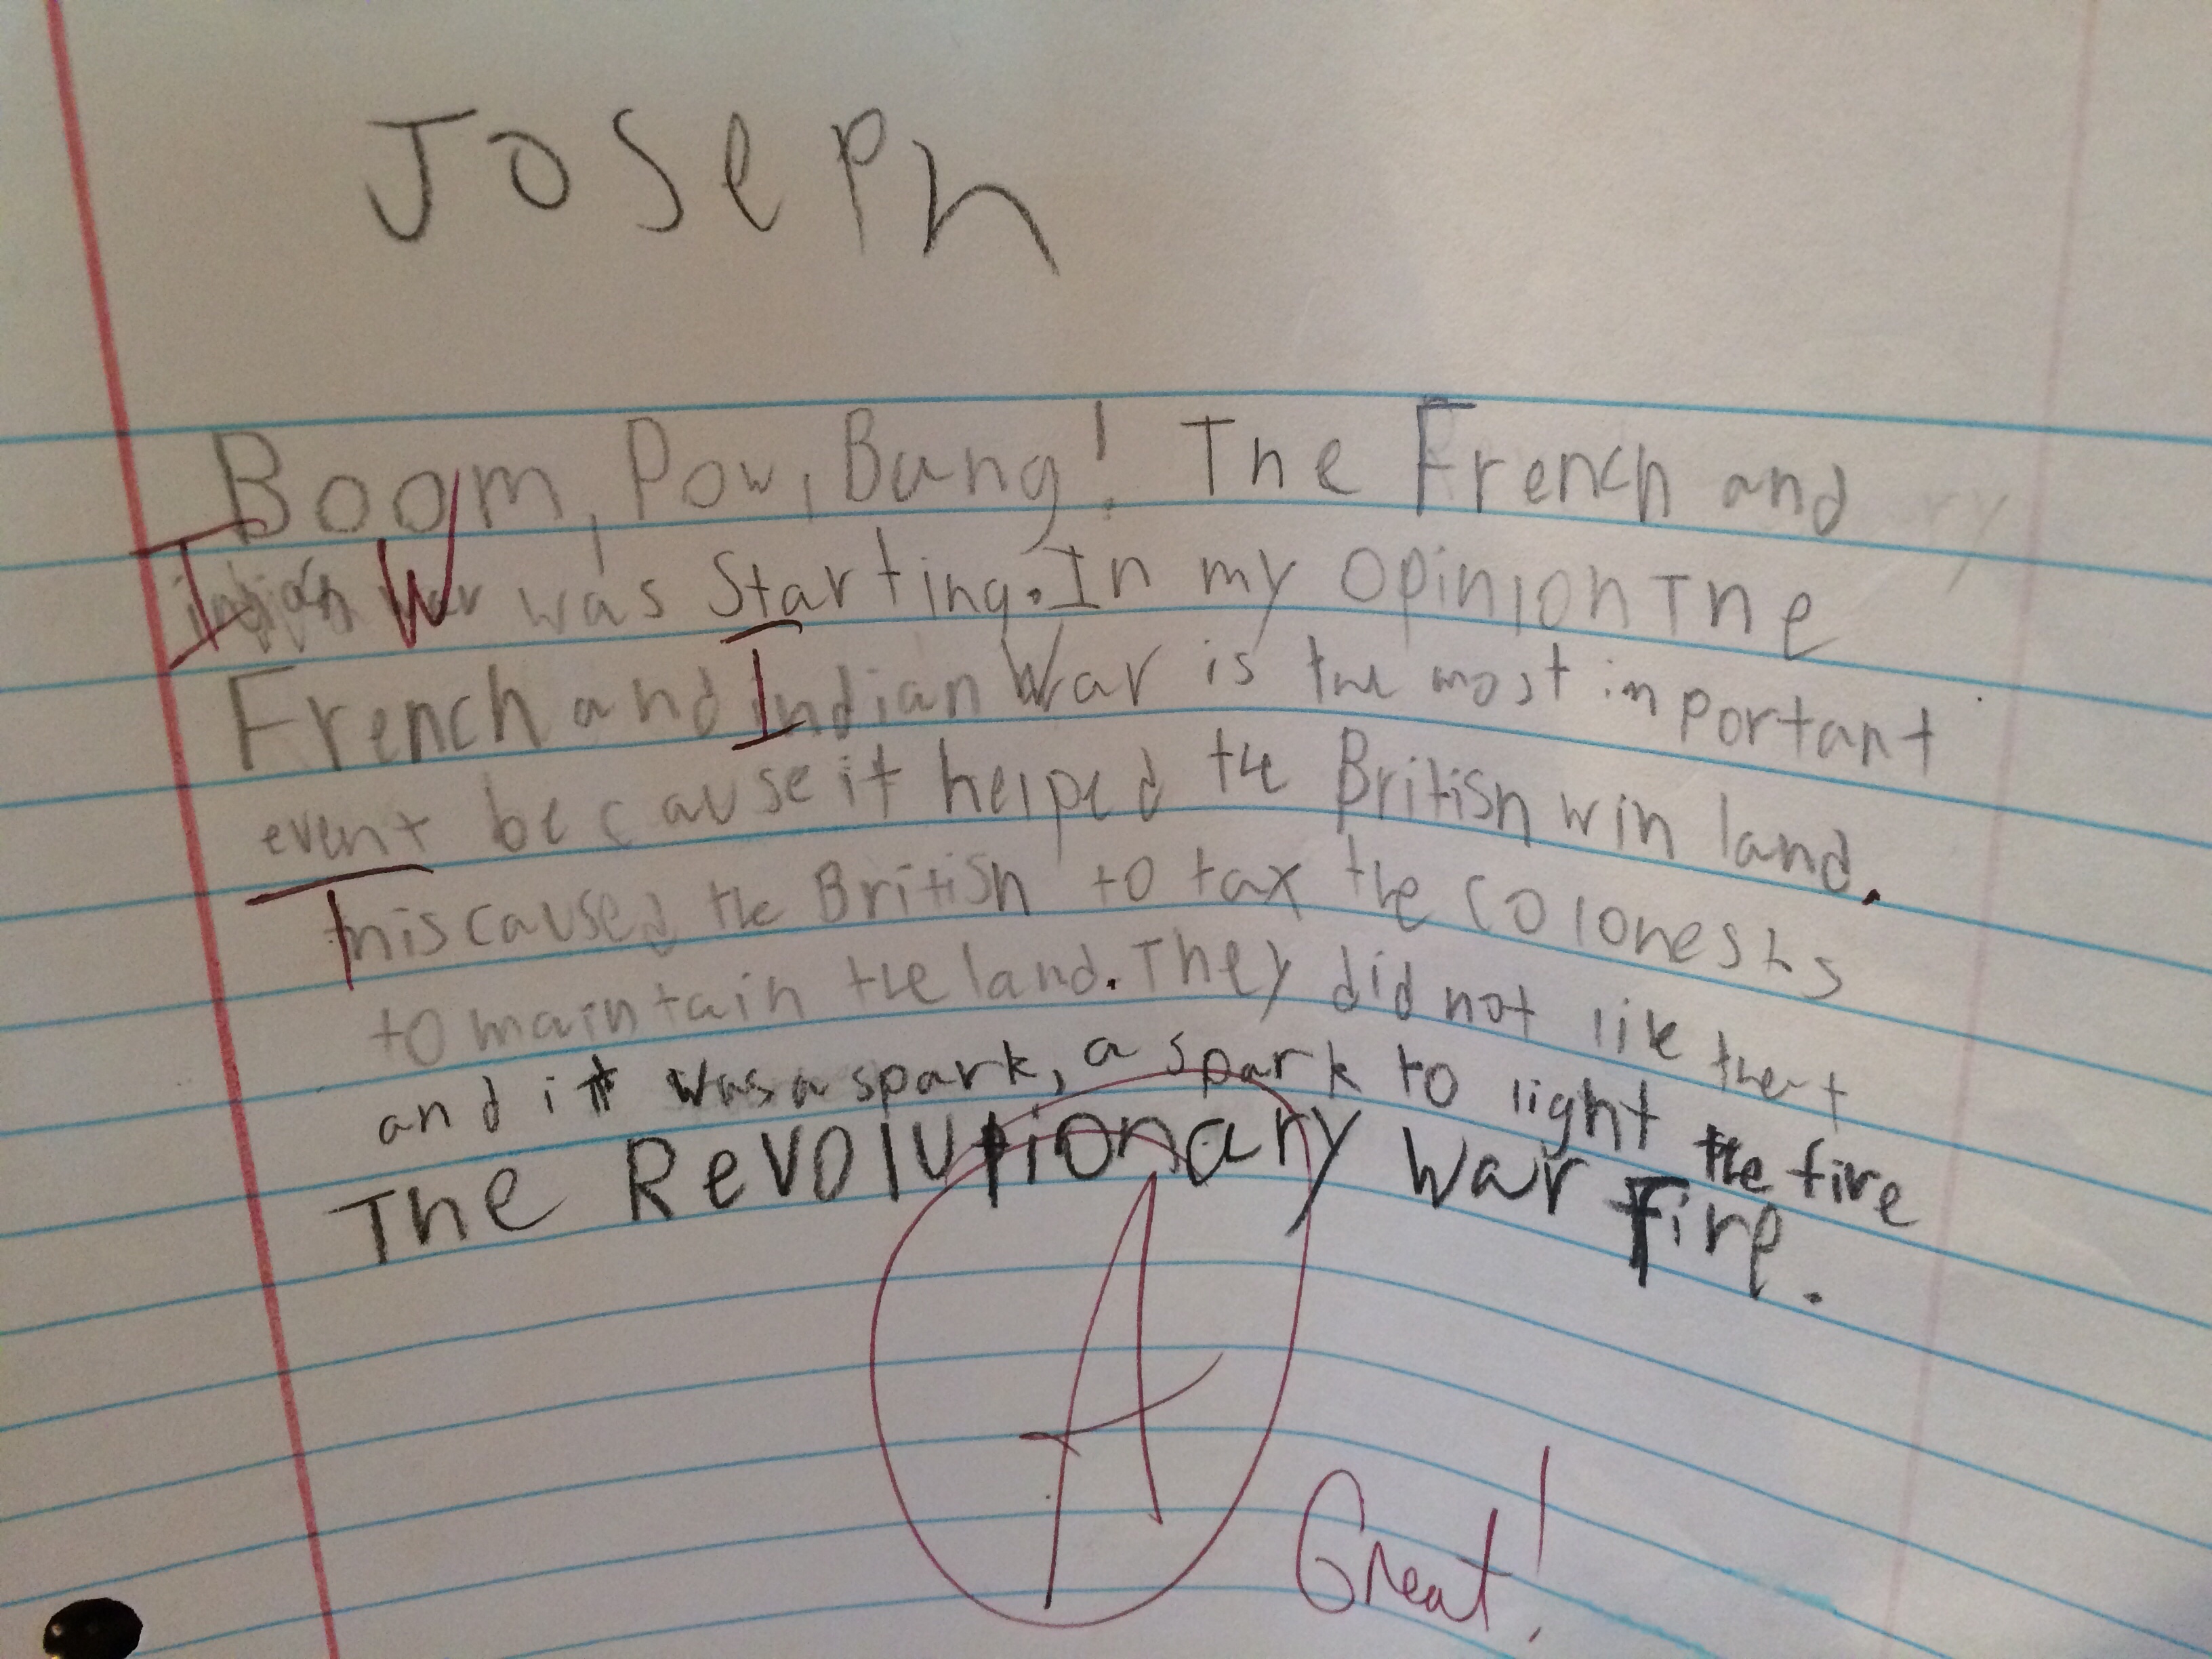 Joseph
Boom, Pow, Bang! The French and
Indian War was Starting. In my opinion The
French and Indian War is the most important
event because it helped the British win land.
This caused the British to tax the colonests
to maintain the land. They did not like that
and it was a spark, a spark to light the fire
The Revolutionary War Fire.
A
Great!